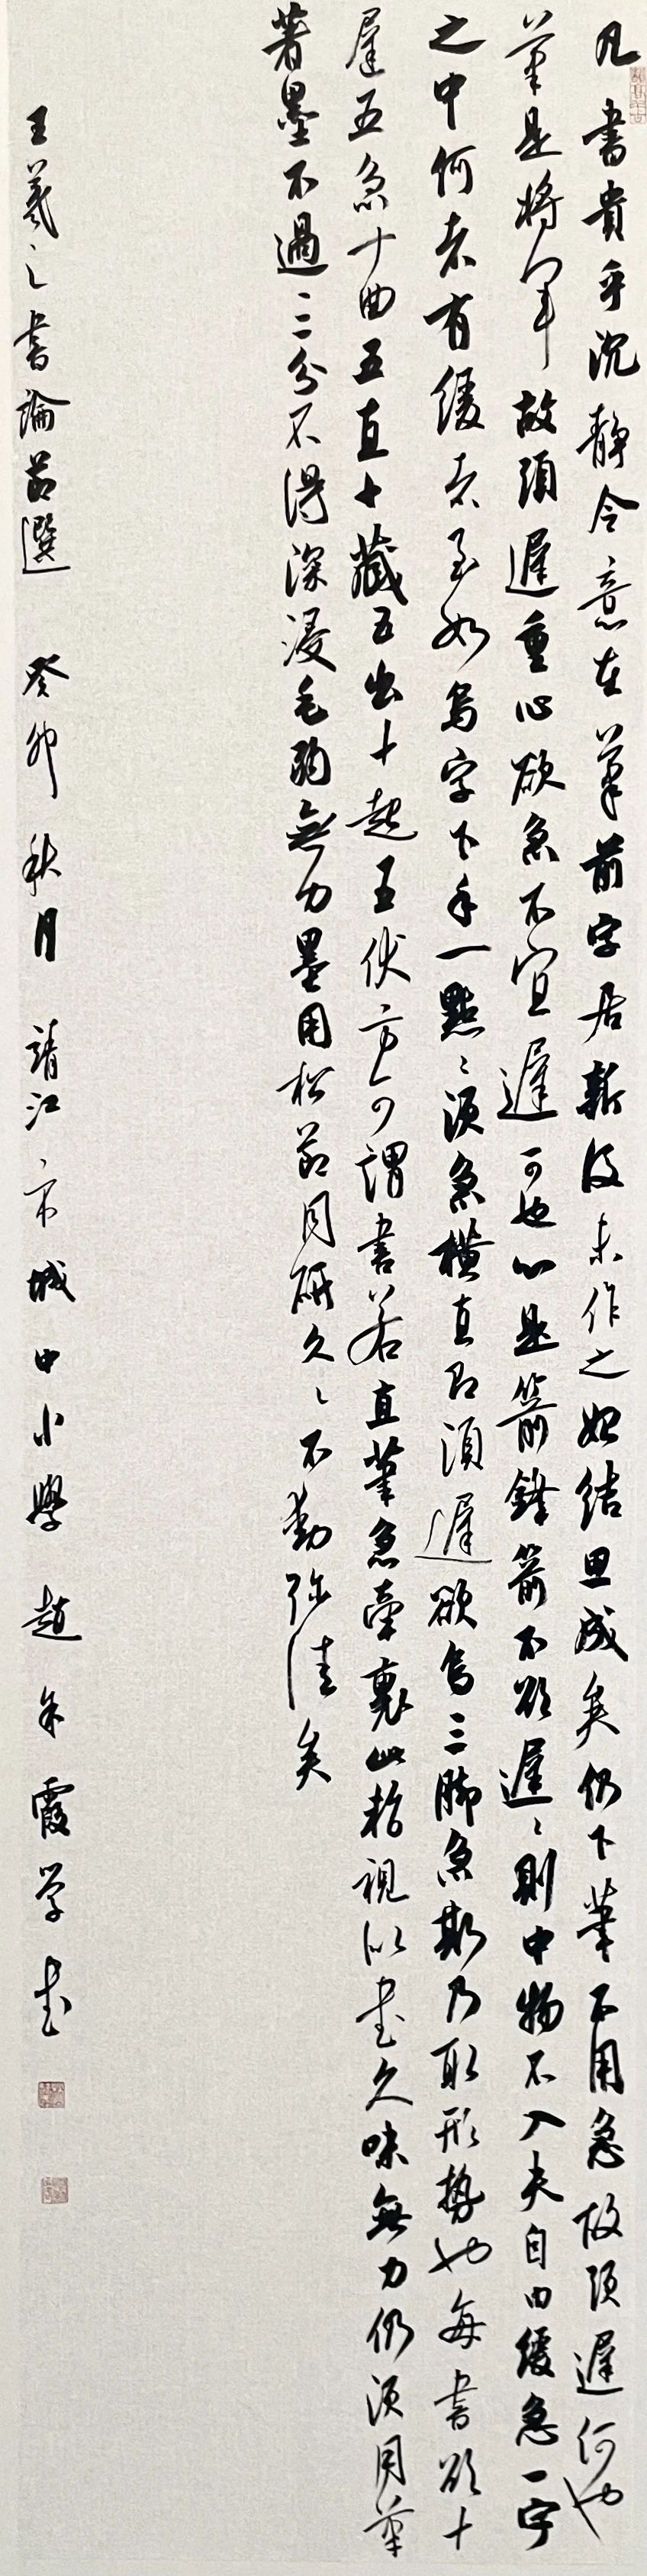 凡書貴乎沉静令意在筆前字居新後未作之始结思成矣仍下筆不用急故須遲何也
筆是将軍故須遲重心欲急不宜遲可也心是箭鋒箭不欲遲〻則中物不入夫自由緩急一字
之中何者有緩者至如烏字下手一點〻須急横直即須遲欲烏三脚急斯乃取形勢也每書欲十
遲五急十曲五直十藏五出十起五伏方可謂書若直筆急牽裹此暂視似書久味無力仍須用筆
著墨不過三分不得深浸毛弱無力墨用松节同研久〻不動弥佳矣
王羲之書論节選 癸卯秋月 靖江市城中小學 趙朱霞学书